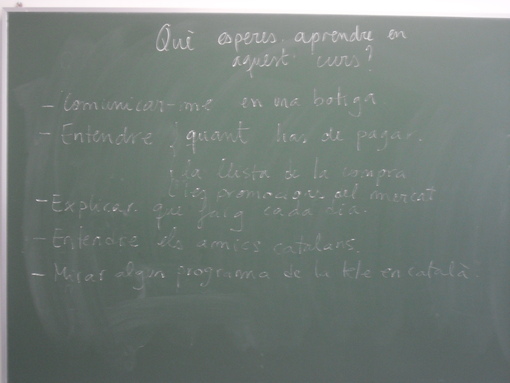 Què esperes aprendre en
aquest curs?
- Comunicar-me en una botiga.
- Entendre { quant has de pagar.
la llista de la compra
les promocions del mercat
- Explicar què faig cada dia.
- Entendre els amics catalans.
- Mirar algun programa de la tele en català.